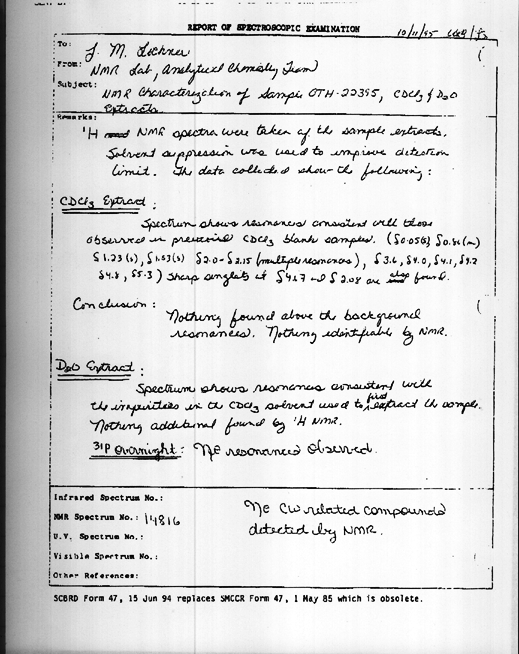 REPORT OF SPECTROSCOPIC EXAMINATION
10/11/95
To: J. M. Lochner
From: NMR Lab, Analytical Chemistry Team
Subject: NMR Characterization of Sample OTH-22395, CDCl3 & D2O
Extracts
Remarks:
1H NMR spectra were taken of the sample extracts.
Solvent suppression was used to improve detection
limit. The data collected show the following:
CDCl3 Extract:
Spectrum shows resonances consistent with those
observed in previous CDCl3 blank samples. (δ0.05(s) δ0.86(m)
δ1.23(s), δ1.53(s) δ2.0-δ2.15 (multiple resonances), δ3.6, δ4.0, δ4.1, δ4.2
δ4.8, δ5.3) Sharp singlets at δ4.67 and δ2.08 are also found.
Conclusion: Nothing found above the background
resonances. Nothing identifiable by NMR.
D2O Extract:
Spectrum shows resonances consistent with
the impurities in the CDCl3 solvent used to first extract the sample.
Nothing additional found by 1H NMR.
31P overnight: No resonances observed.
Infrared Spectrum No.:
NMR Spectrum No.: 14816
U.V. Spectrum No.:
Visible Spectrum No.:
Other References:
No CW related compounds
detected by NMR.
SCBRD Form 47, 15 Jun 94 replaces SMCCR Form 47, 1 May 85 which is obsolete.